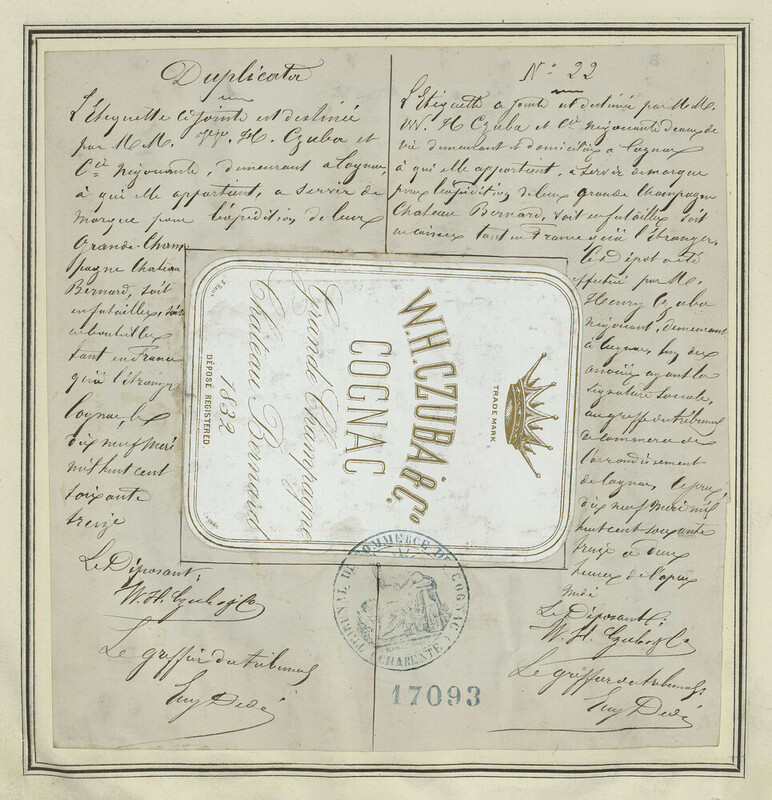 Duplicata
L'Etiquette ci jointe est destinée
par M M. W. H. Czuba et
Cie Négociants, demeurant à Cognac,
à qui elle appartient, a servir de
marque pour l'expédition, de leurs
Grande-Cham
pagne Chateau
Bernard, soit
en futailles, soit
en bouteilles
tant en France
qu'à l'étranger
Cognac, le
dix neuf Mai
mil huit cent
soixante
treize
Le Déposant:
W. H. Czuba & Co
Le greffier du tribunal
Eug Dedé
No 22
L'Etiquette ci jointe est destinée par M M.
W. H Czuba et Cie Négociants d'eaux de
vie demeurant & domiciliés à Cognac
à qui elle appartient, à servir de marque
pour l'expédition de leurs Grande Champagne
Chateau Bernard, soit en futailles soit
en caisses tant en France qu'à l'étranger.
Ce Dépôt a été
effectué par M.
Henry Czuba
négociant, demeurant
à Cognac, l'un des
associés ayant la
signature sociale,
au greffe du tribunal
de commerce de
l'arrondissement
de Cognac,
dix neuf Mai mil
huit cent soixante
treize à deux
heures de l'après
midi
Le Déposant:
W. H. Czuba & Co
Le greffier du tribunal
Eug Dedé
TRADE MARK
W.H. CZUBA & Co.
COGNAC
Grande Champagne
Château Bernard
1832
DÉPOSÉ REGISTERED.
TRIBUNAL DE COMMERCE DE COGNAC
CHARENTE
17093